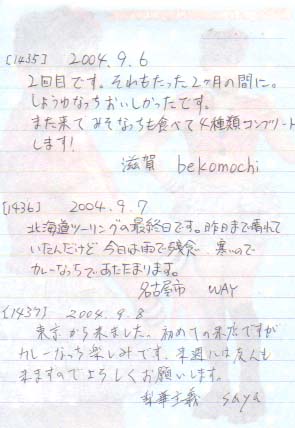 [1435] 2004.9.6
2回目です。それもたった2ヶ月の間に。
しょうゆなっちおいしかったです。
また来てみそなっちも食べて4種類コンプリート
します!
滋賀 bekomochi
[1436] 2004.9.7
北海道ツーリングの最終日です。昨日まで晴れて
いたんだけど 今日は雨で残念 寒いので
カレーなっちであたたまります。
名古屋市 WAY
[1437] 2004.9.8
東京から来ました。初めての来店ですが
カレーなっち楽しみです。来週には友人も
来ますのでよろしくお願いします。
梨華主義 saya